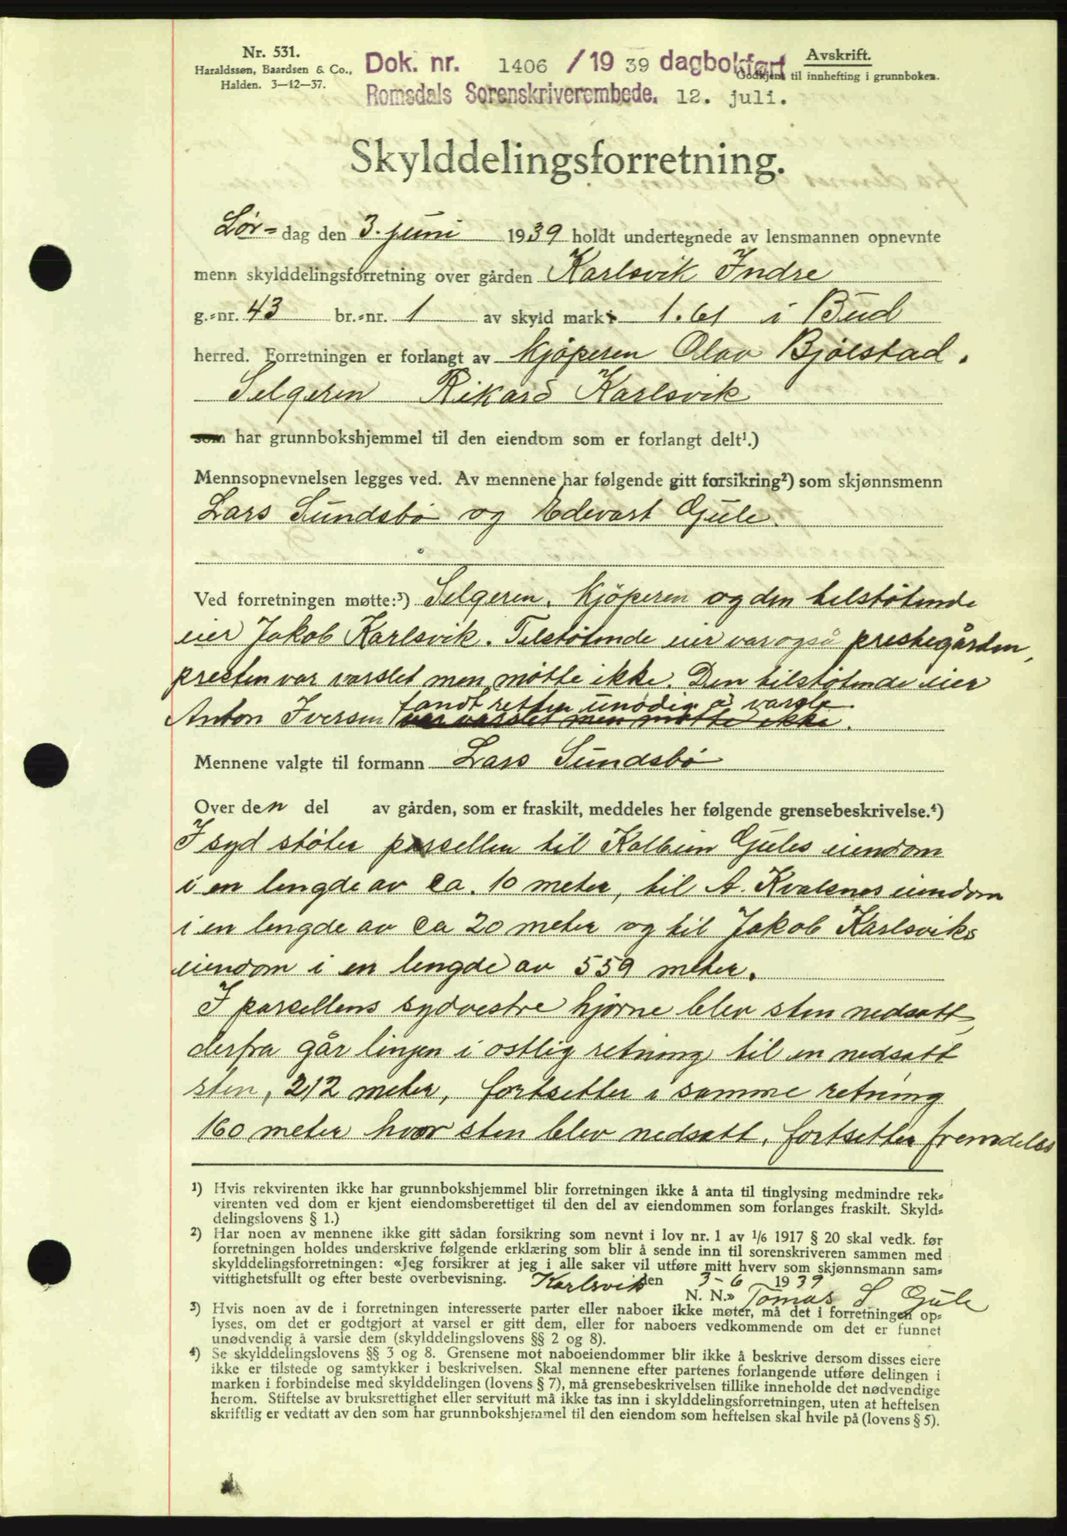 Nr. 531.
Haraldssøn, Baardsen & Co.,
Halden. 3—12—37.
Dok. nr. 1406 /19 39 dagbokført
Romsdals Sorenskriverembede. 12. juli.
Avskrift.
Godkjent til innhefting i grunnboken.
Skylddelingsforretning.
Lør= dag den 3. juni 1939 holdt undertegnede av lensmannen opnevnte
menn skylddelingsforretning over gården Karlsvik Indre
g.=nr. 43 br.=nr. 1 av skyld mark 1.61 i Bud
herred. Forretningen er forlangt av kjøperen Olav Bjølstad.
Selgeren Rikard Karlsvik
som har grunnbokshjemmel til den eiendom som er forlangt delt¹.)
Mennsopnevnelsen legges ved. Av mennene har følgende gitt forsikring²) som skjønnsmenn
Lars Sundsbø og Edevart Gule.
Ved forretningen møtte:³) Selgeren, kjøperen og den tilstøtende
eier Jakob Karlsvik. Tilstøtende eier var også prestegården,
presten var varslet men møtte ikke. Den tilstøtende eier
fandt retten unødig å varsle
Anton Iversen var varslet men møtte ikke.
Mennene valgte til formann Lars Sundsbø
Over den del av gården, som er fraskilt, meddeles her følgende grensebeskrivelse.⁴)
I syd støter parsellen til Kolbein Gules eiendom
i en lengde av ca. 10 meter, til A. Kvalsnes eiendom
i en lengde av ca 20 meter og til Jakob Karlsviks
eiendom i en lengde av 559 meter.
I parsellens sydvestre hjørne blev sten nedsatt,
derfra går linjen i østlig retning til en nedsatt
sten, 212 meter, fortsetter i samme retning
160 meter hvor sten blev nedsatt, fortsetter fremdeles
¹) Hvis rekvirenten ikke har grunnbokshjemmel blir forretningen ikke å anta til tinglysing medmindre rek=
virenten ved dom er kjent eiendomsberettiget til den del av eiendommen som forlanges fraskilt. Skyld=
delingslovens § 1.)
²) Har noen av mennene ikke gitt sådan forsikring som nevnt i lov nr. 1 av 1/6 1917 § 20 skal vedk. før
forretningen holdes underskrive følgende erklæring som blir å sende inn til sorenskriveren sammen med
skylddelingsforretningen: «Jeg forsikrer at jeg i alle saker vil utføre mitt hverv som skjønnsmann sam=
vittighetsfullt og efter beste overbevisning. Karlsvik den 3-6 1939
N. N.» Tomas S Gule
³) Hvis noen av de i forretningen interesserte parter eller naboer ikke møter, må det i forretningen op=
lyses, om det er godtgjort at varsel er gitt dem, eller for naboers vedkommende om det er funnet
unødvendig å varsle dem (skylddelingslovens §§ 2 og 8).
⁴) Se skylddelingslovens §§ 3 og 8. Grensene mot naboeiendommer blir ikke å beskrive dersom disses eiere
ikke er tilstede og samtykker i beskrivelsen. Skal mennene efter partenes forlangende utføre delingen i
marken i forbindelse med skylddelingen (lovens § 7), må grensebeskrivelsen tillike inneholde det nødvendige
herom. Stiftelse av bruksrettighet eller servitutt må ikke tas inn i skylddelingsforretningen, uten at heftelsen
skriftlig er vedtatt av den som har grunnbokshjemmel til den eiendom som heftelsen skal hvile på (lovens § 5).